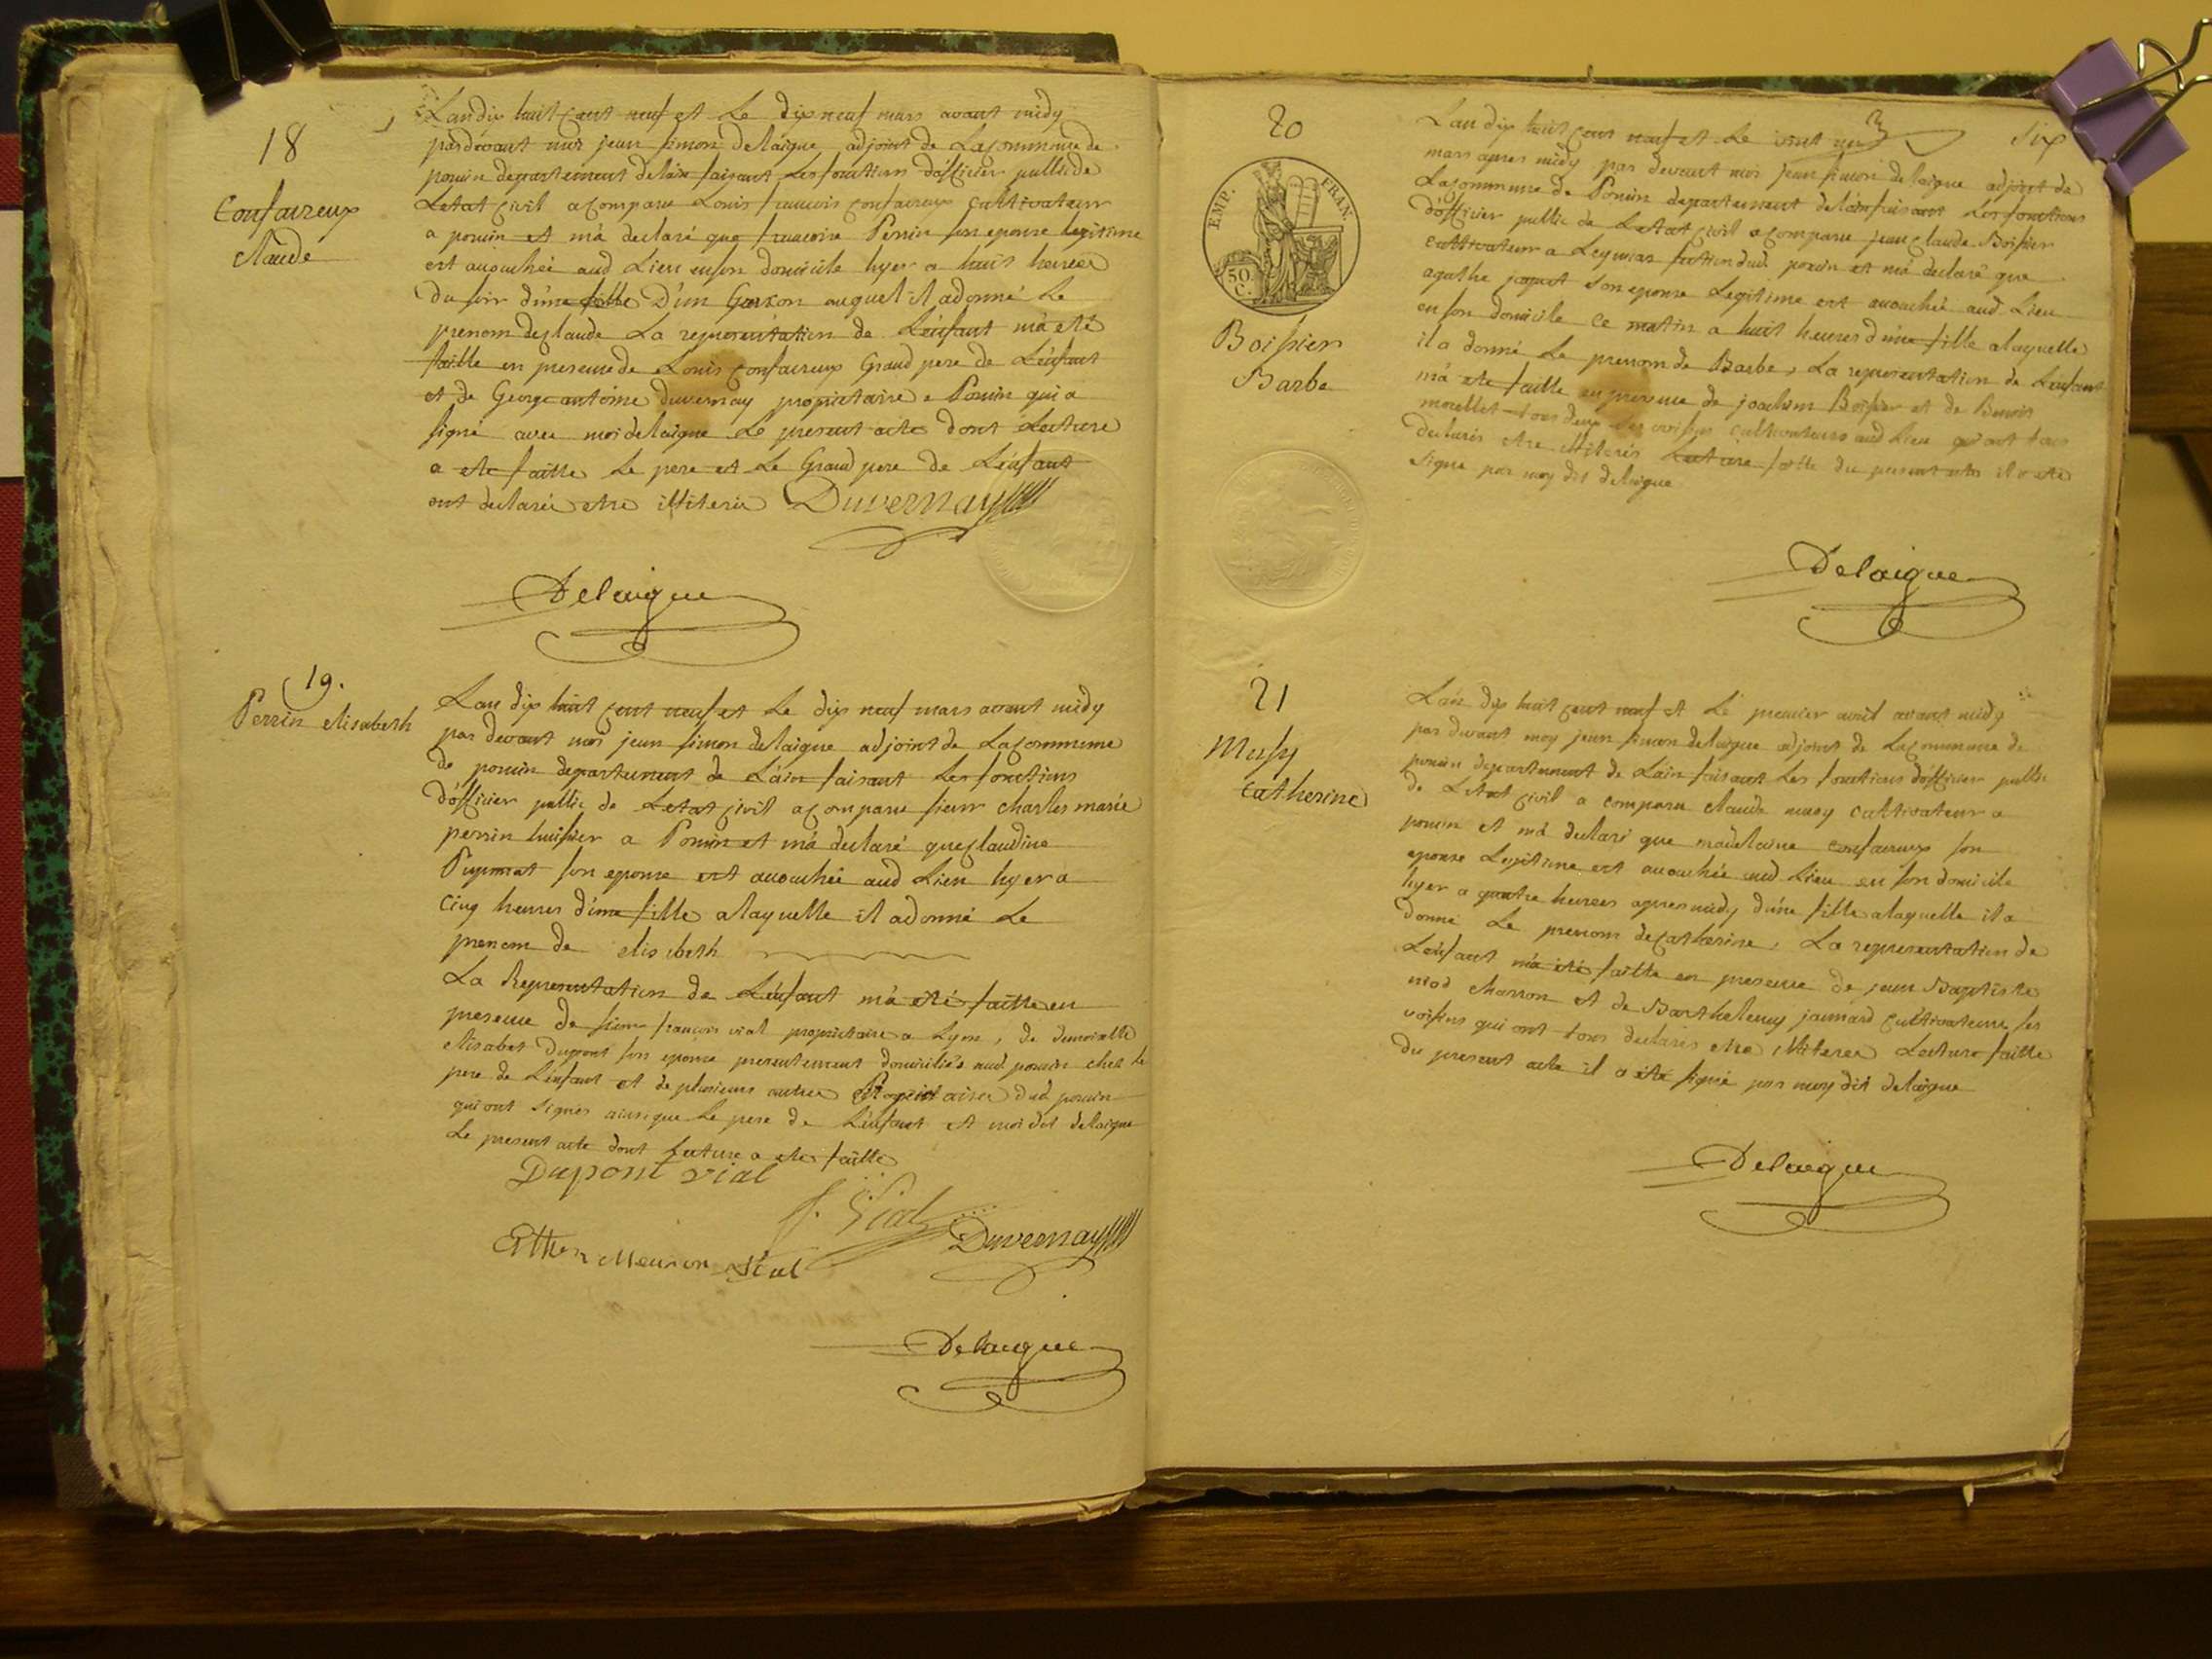 18
Confaireux
Claude
Lan dix huit cent neuf et Le dix neuf mars avant midy
pardevant moi jean simon delaigue adjoint de La commune de
poncin departement delain faisant Les fonctions d'officier public de
Letat civil a comparu Louis francois confaireux cultivateur
a poncin et m'a declaré que francoise Perrin son epouse legitime
est acouchée aud Lieu en son domicile hyer a huit heures
du soir d'une fille D'un Garcon auquel il a donné Le
prenom de claude La representation de L'enfant m'a eté
faitte en presence de Louis confaireux Grand pere de L'enfant
et de George antoine duvernay propriétaire a Poncin qui a
signé avec moi delaigue Le present acte dont Lecture
a ete faitte Le pere et Le Grand pere de L'enfant
ont declarés etre illiterés Duvernay
Delaigue
19.
Perrin elisabeth
Lan dix huit cent neuf et Le dix neuf mars avant midy
par devant moi jean simon delaigue adjoint de La commune
de poncin departement de L'ain faisant Les fonctions
d'officier public de Letat civil a comparu sieur charles marie
perrin huissier a Poncin et m'a declaré que claudine
son epouse est acouchée aud Lieu hyer a
cinq heures d'une fille a laquelle il a donné Le
prenom de elisabeth
La Representation de L'enfant m'a été faitte en
presence de sieur francois vial propriétaire a Lyon, de demoiselle
elisabet Dupont son epouse presentement domiciliés aud poncin chez le
pere de L'enfant et de plusieurs autres Propriétaires dud poncin
qui ont signés ainsi que Le pere de L'enfant et moi dit delaigue
Le present acte dont Lecture a ete faitte
Dupont vial
f. Vial
Duvernay
Meunier vial
Delaigue
20
six
EMP. FRAN.
50 C.
Boissier
Barbe
Lan dix huit cent neuf et Le vint un
mars apres midy par devant moi jean simon delaigue adjoint de
La commune de Poncin departement de l'ain faisant Les fonctions
d'officier public de Letat civil a comparu jean claude Boissier
cultivateur a Leymiat section dud poncin et m'a declaré que
agathe jaquet son epouse Legitime est acouchée aud Lieu
en son domicile ce matin a huit heures d'une fille a laquelle
il a donné Le prenom de Barbe, La representation de L'enfant
m'a ete faitte en presence de joachim Boissier et de Benoit
morellet tous deux ses voisins cultivateurs aud Lieu qui ont tous
declarés etre illiterés Lecture faitte du present acte il a ete
signé par moy dit delaigue
Delaigue
21
Musy
Catherine
Lan dix huit cent neuf et Le premier avril avant midy
par devant moy jean simon delaigue adjoint de La commune de
poncin departement de Lain faisant Les fonctions d'officier public
de Letat civil a comparu claude musy cultivateur a
poncin et m'a declaré que madelaine confaireux son
epouse Legitime est acouchée aud Lieu en son domicile
hyer a quatre heures apres midy d'une fille a laquelle il a
donné Le prenom de catherine, La representation de
L'enfant m'a été faitte en presence de jean Baptiste
niod charron et de Barthelemy jaumard cultivateurs ses
voisins qui ont tous declarés etre illiterés Lecture faitte
du present acte il a été signé par moy dit delaigue
Delaigue